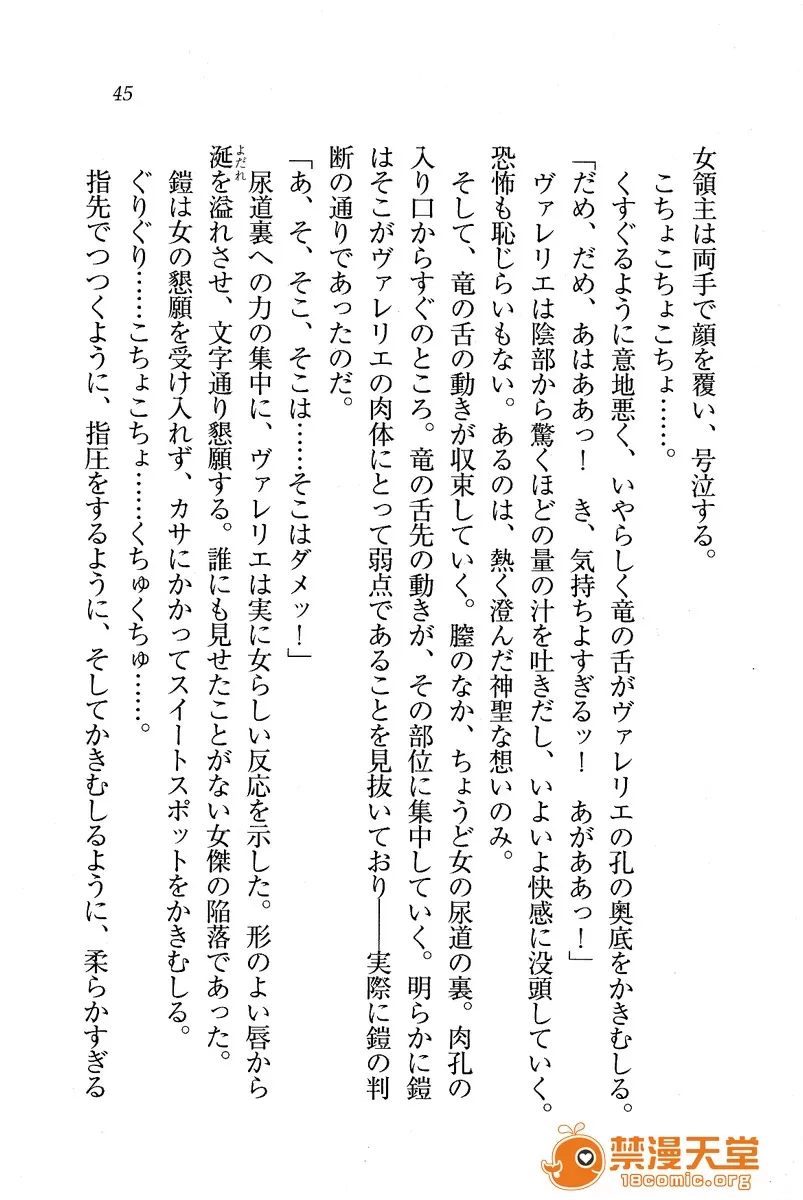 45
女領主は両手で顔を覆い、号泣する。
こちょこちょこちょ……。
くすぐるように意地悪く、いやらしく竜の舌がヴァレリエの孔の奥底をかきむしる。
「だめ、だめ、あはああっ！　き、気持ちよすぎるッ！　あがああっ！」
ヴァレリエは陰部から驚くほどの量の汁を吐きだし、いよいよ快感に没頭していく。
恐怖も恥じらいもない。あるのは、熱く澄んだ神聖な想いのみ。
そして、竜の舌の動きが収束していく。膣のなか、ちょうど女の尿道の裏。肉孔の
入り口からすぐのところ。竜の舌先の動きが、その部位に集中していく。明らかに鎧
はそこがヴァレリエの肉体にとって弱点であることを見抜いており――実際に鎧の判
断の通りであったのだ。
「あ、そ、そこ、そこは……そこはダメッ！」
尿道裏への力の集中に、ヴァレリエは実に女らしい反応を示した。形のよい唇から
涎を溢れさせ、文字通り懇願する。誰にも見せたことがない女傑の陥落であった。
よだれ
鎧は女の懇願を受け入れず、カサにかかってスイートスポットをかきむしる。
ぐりぐり……こちょこちょ……くちゅくちゅ……。
指先でつつくように、指圧をするように、そしてかきむしるように、柔らかすぎる
禁漫天堂
18comic.org